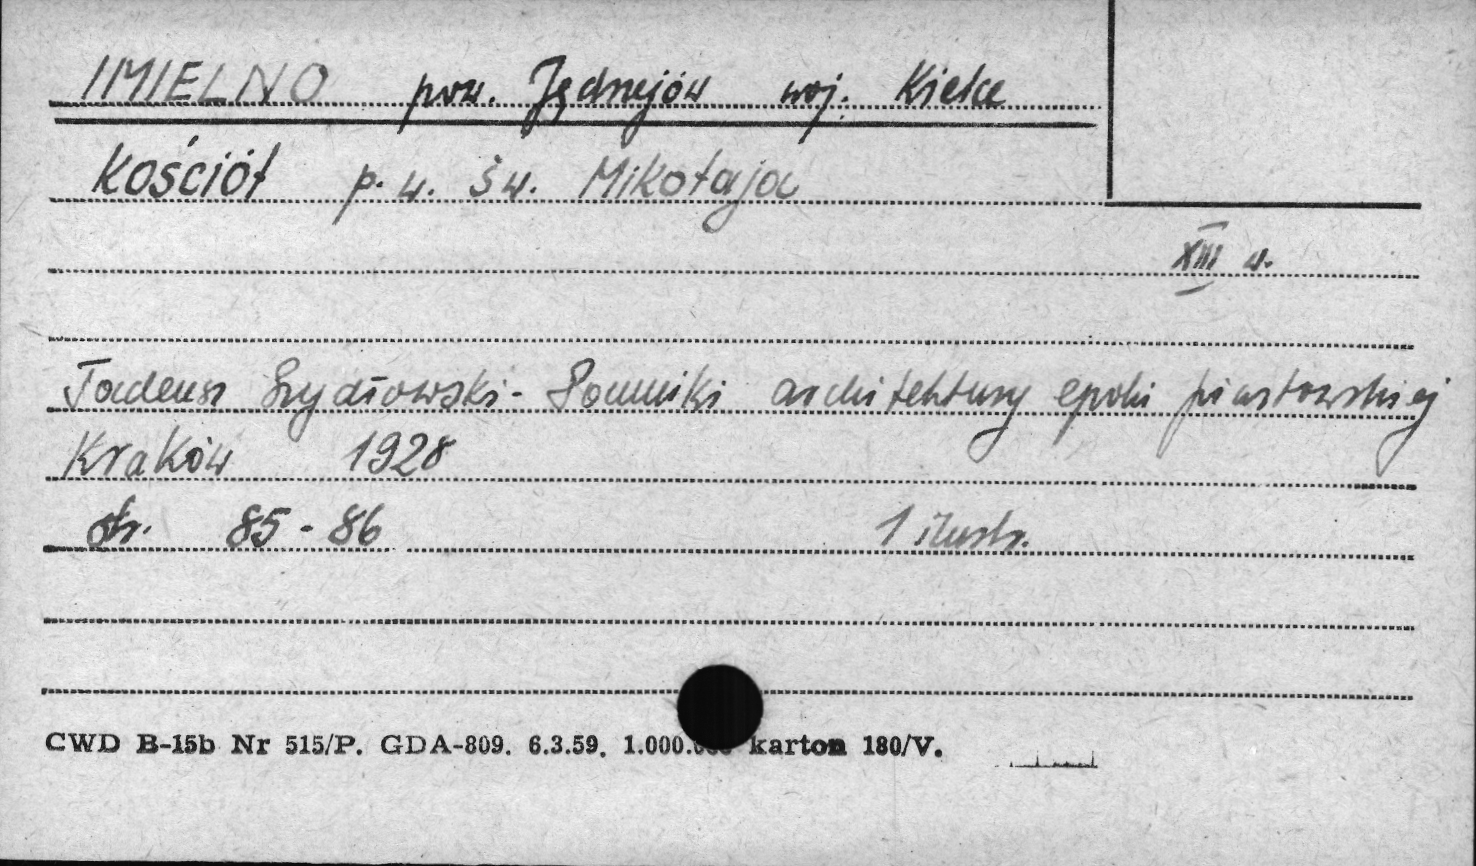 IMIELNO pow. Jędrzejów woj. Kielce
Kościół p.w. św. Mikołaja
XIII w.
Tadeusz Szydłowski - Pomniki architektury epoki piastowskiej
Kraków 1928
str. 85-86 1 ilustr.
CWD B-15b Nr 515/P. GDA-809. 6.3.59. 1.000.000 karton 180/V.